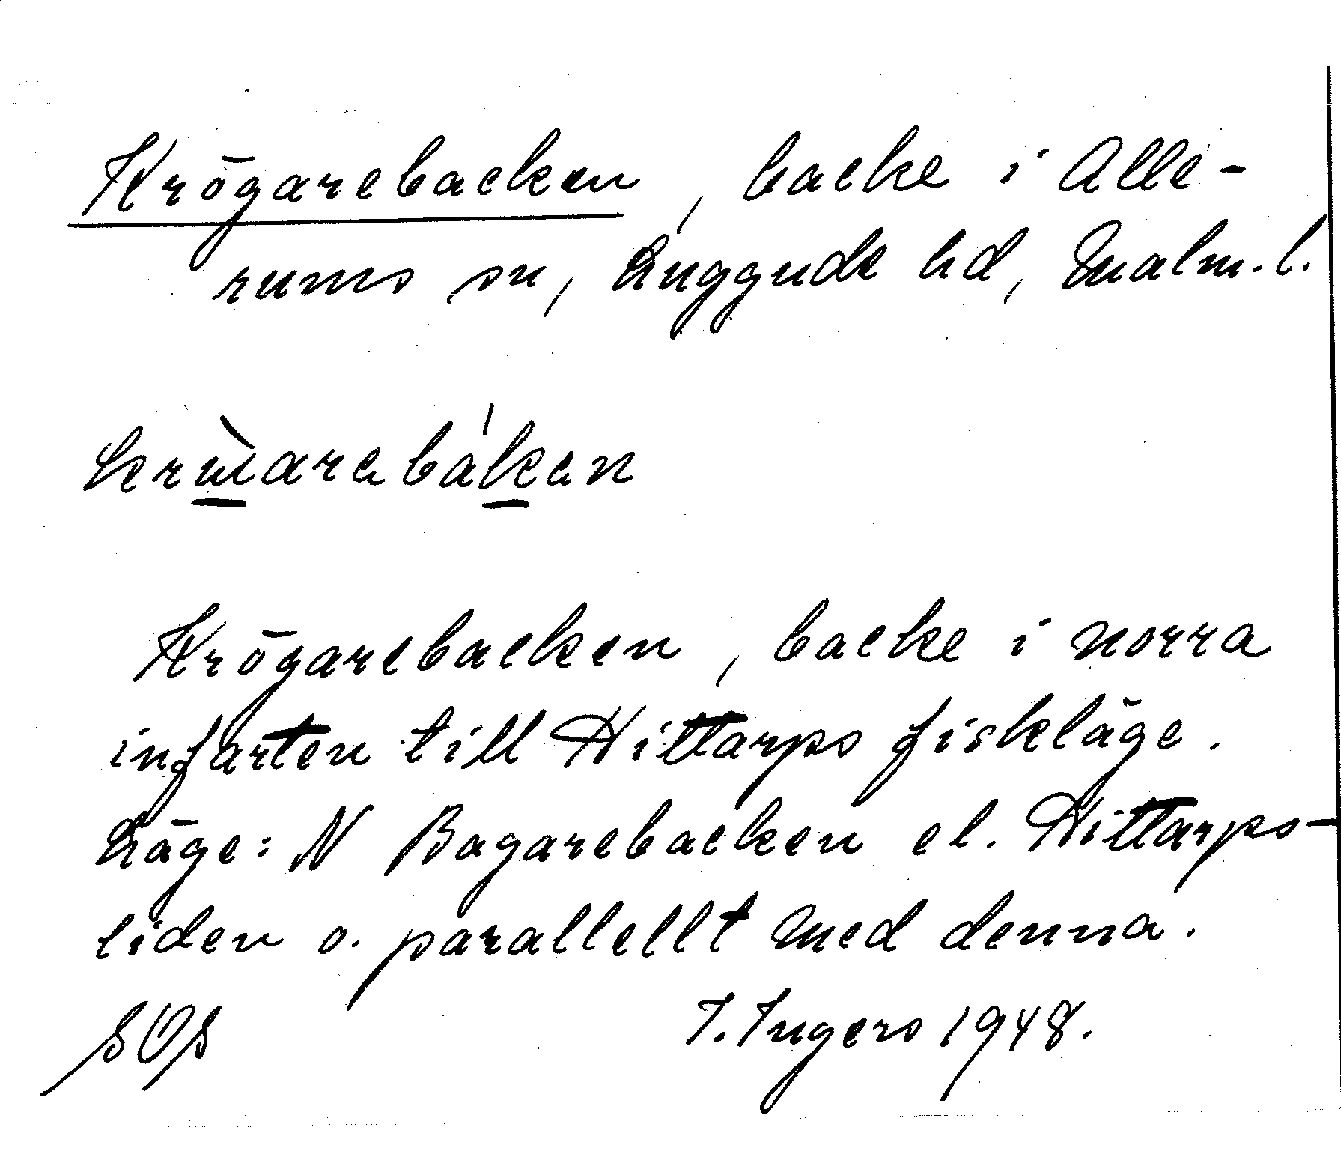 Krögarebacken, backe i Alle-
rums sn, Luggude hd, Malm. l.
Krögarebacken, backe i norra
infarten till Hittarps fiskläge.
Läge: N Bagarebacken el. Hittarps-
liden o. parallellt med denna.
SOS I. Ingers 1948.